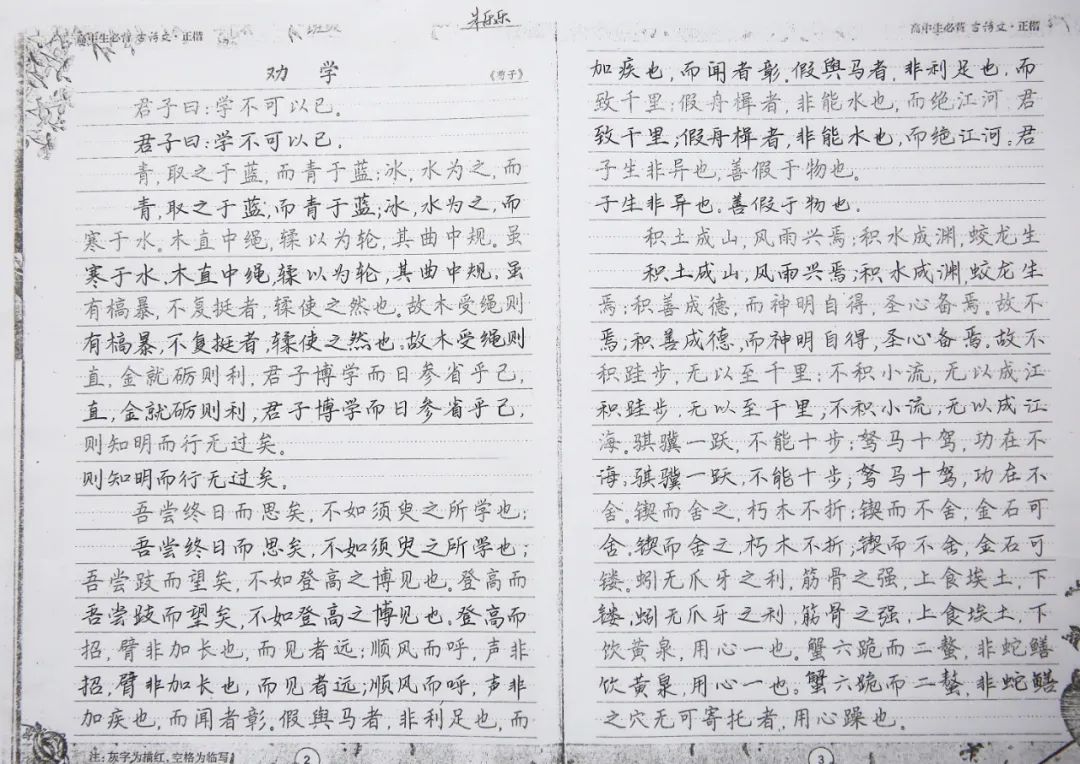 高中生必背古诗文·正楷
劝学 《荀子》
君子曰:学不可以已。
君子曰:学不可以已。
青,取之于蓝,而青于蓝;冰,水为之,而
青,取之于蓝,而青于蓝;冰,水为之,而
寒于水。木直中绳,𫐓以为轮,其曲中规。虽
寒于水。木直中绳,𫐓以为轮,其曲中规。虽
有槁暴,不复挺者,𫐓使之然也。故木受绳则
有槁暴,不复挺者,𫐓使之然也。故木受绳则
直,金就砺则利,君子博学而日参省乎己,
直,金就砺则利,君子博学而日参省乎己,
则知明而行无过矣。
则知明而行无过矣。
吾尝终日而思矣,不如须臾之所学也;
吾尝终日而思矣,不如须臾之所学也;
吾尝跂而望矣,不如登高之博见也。登高而
吾尝跂而望矣,不如登高之博见也。登高而
招,臂非加长也,而见者远;顺风而呼,声非
招,臂非加长也,而见者远;顺风而呼,声非
加疾也,而闻者彰。假舆马者,非利足也,而
注:灰字为描红,空格为临写
2
高中生必背古诗文·正楷
加疾也,而闻者彰。假舆马者,非利足也,而
致千里;假舟楫者,非能水也,而绝江河。君
致千里;假舟楫者,非能水也,而绝江河。君
子生非异也,善假于物也。
子生非异也。善假于物也。
积土成山,风雨兴焉;积水成渊,蛟龙生
积土成山,风雨兴焉;积水成渊,蛟龙生
焉;积善成德,而神明自得,圣心备焉。故不
焉;积善成德,而神明自得,圣心备焉。故不
积跬步,无以至千里;不积小流,无以成江
积跬步,无以至千里;不积小流,无以成江
海。骐骥一跃,不能十步;驽马十驾,功在不
海;骐骥一跃,不能十步;驽马十驾,功在不
舍。锲而舍之,朽木不折;锲而不舍,金石可
舍。锲而舍之,朽木不折;锲而不舍,金石可
镂。蚓无爪牙之利,筋骨之强,上食埃土,下
镂;蚓无爪牙之利,筋骨之强,上食埃土,下
饮黄泉,用心一也。蟹六跪而二螯,非蛇鳝
饮黄泉,用心一也。蟹六跪而二螯,非蛇鳝
之穴无可寄托者,用心躁也。
3